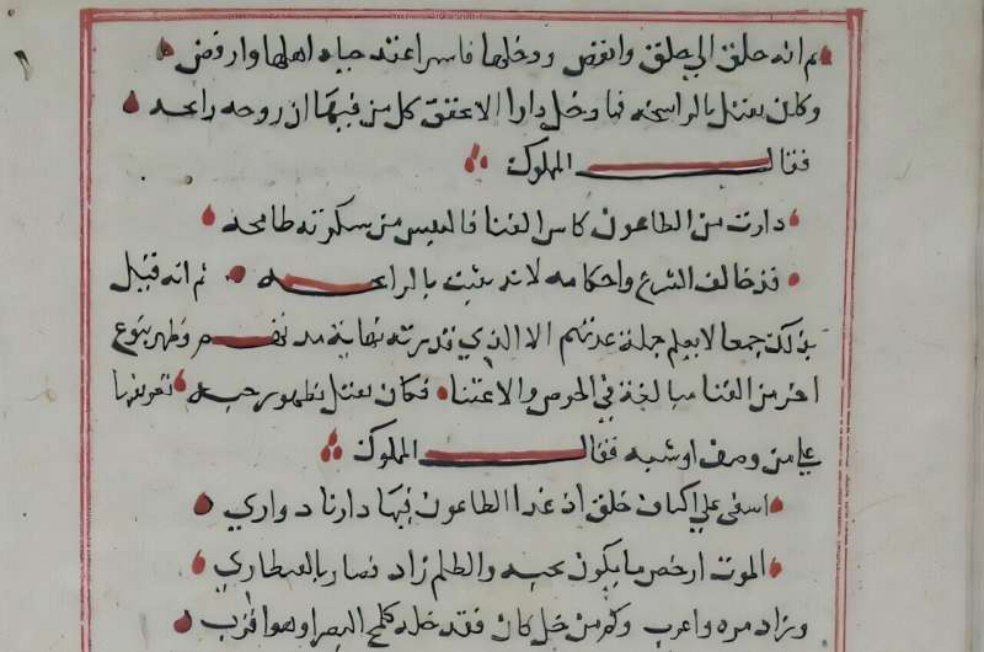 ثم انه حلق الي جلق وانقض ودخلها فاسر اعنة حياه اهلها وارفض
وكان يقتل بالرايحه فما دخل دارا الا عقق كل من فيها ان روحه رايحه
فقال المملوك
دارت من الطاعون كاس الفنا فالنفس من سكرته طافحه
قد خالف الشرع واحكامه لانه يثبت بالرايحه ثم انه قتل
بذلك جمعا لا يعلم جملة عدتهم الا الذي قدر نهاية مدتهم وظهر بنوع
اخر من الفنا مبالغة في الحرص والاعتنا فكان يقتل بظهور حبه
علي من وصف او شبه فقال المملوك
اسفي علي اكناف خلق اذ غدا الطاعون فيها دارنا دواري
الموت ارخص ما يكون بحبه والظلم زاد فصار بالقنطاري
وزاد مره واعرب وكم من خل كان فقد خله كلمح البصر او هو اقرب